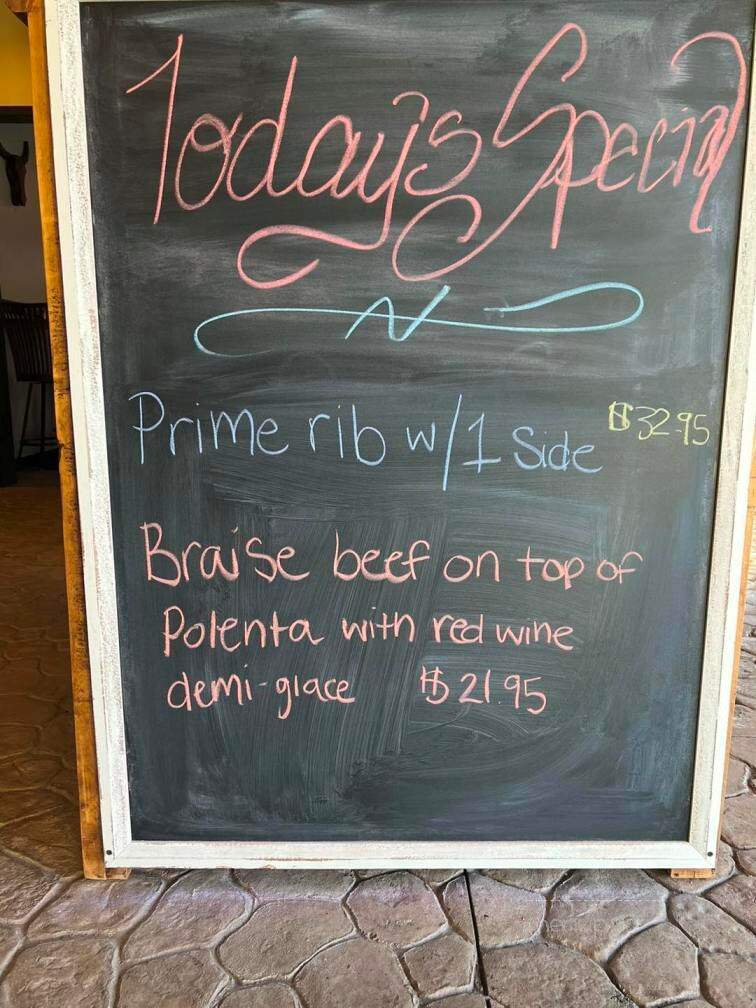 Today's Special
Prime rib w/1 Side $32.95
Braise beef on top of
Polenta with red wine
demi-glace $21.95